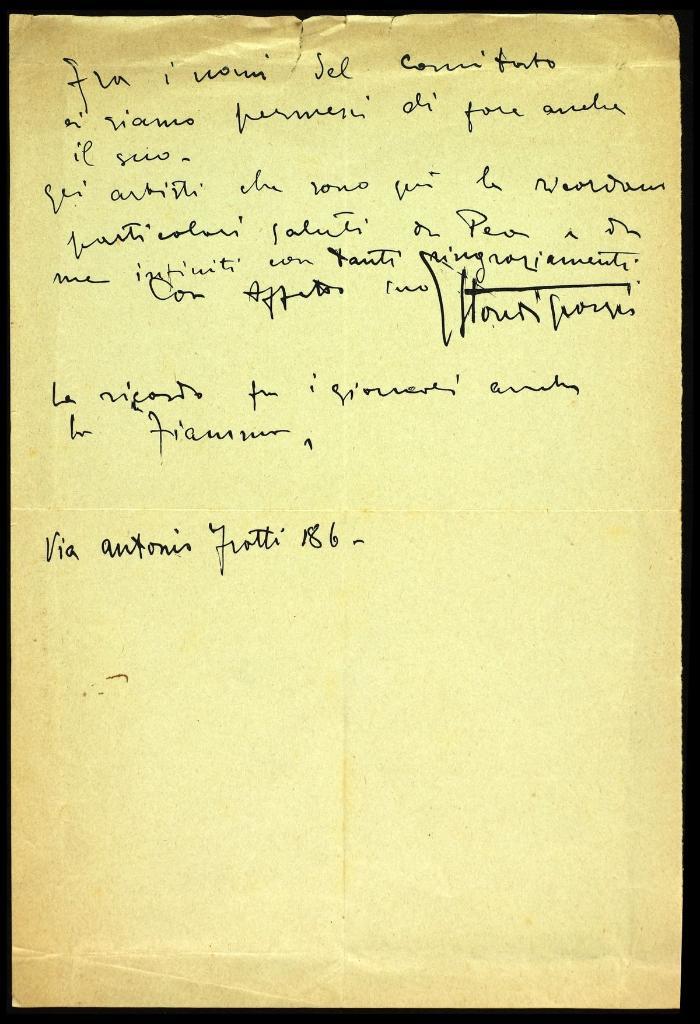 Fra i nomi del comitato
ci siamo permessi di fare anche
il suo -
gli artisti che sono qui la ricordano
particolari saluti da Pea e da
me infiniti con tanti ringraziamenti.
Con affetto suo
La ricordo fra i giovani anche
la Fiamma,
Via Antonio Fratti 186 -